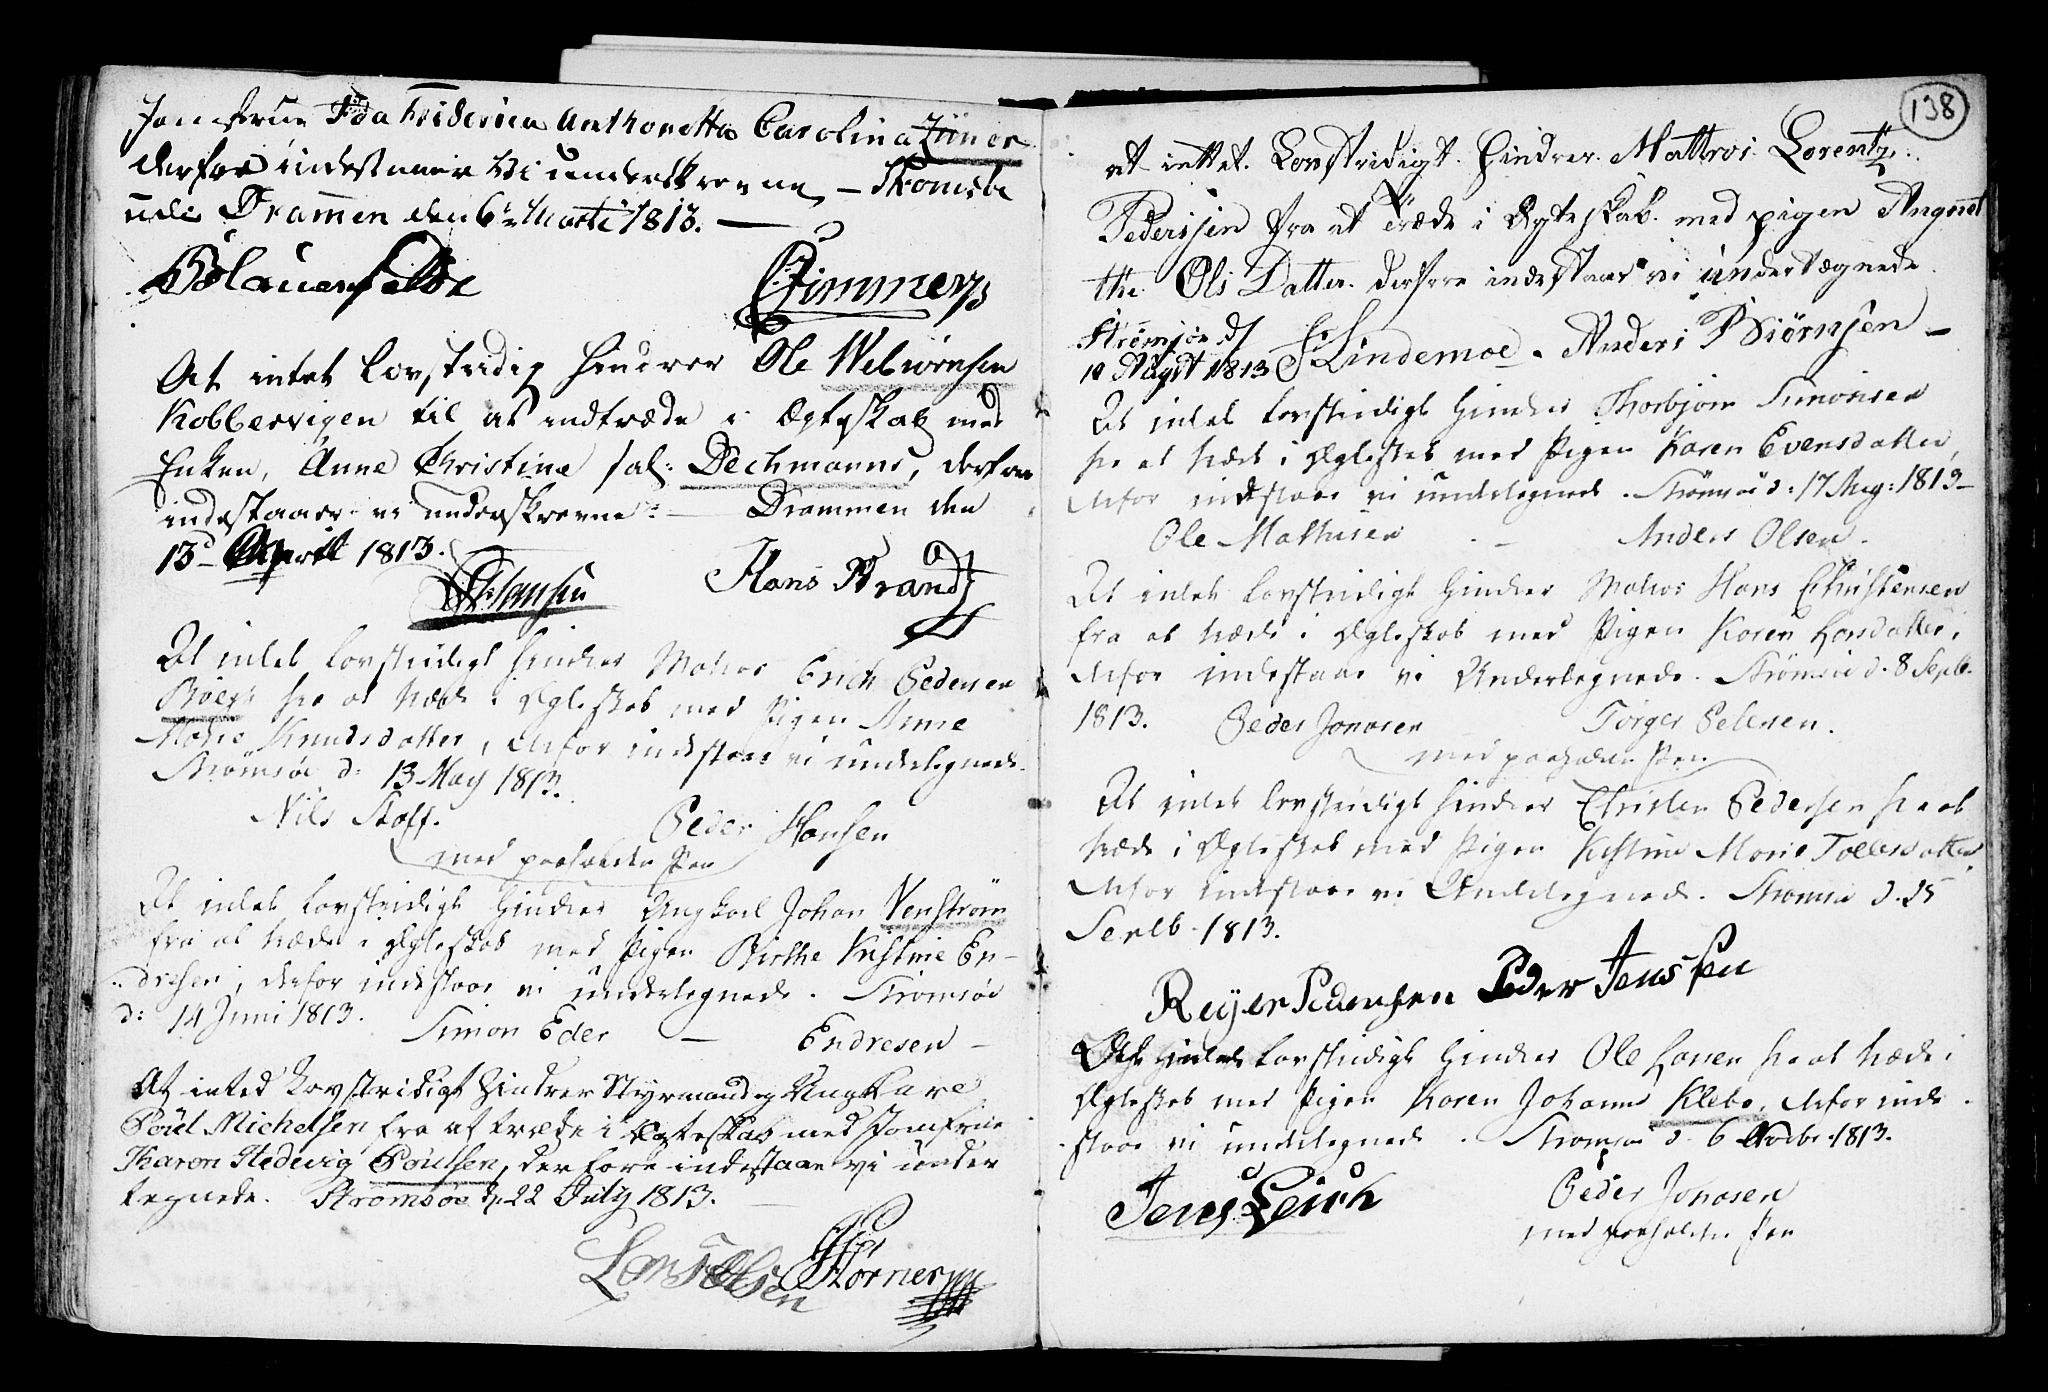 Jomfrue Ida Friderica Anthonetta Carolina Ziiner
derfor indestaaer Vi underskrevne, – Strømsøe
udi Drammen den 6te Marti 1813. –
Blauenfeldt Zimmer
At intet lovstridig hindrer Ole Webiørnsen
Kobbervigen til at indtræde i Ægteskab med
Enken, Anne Christine sal: Dechmanns, derfore
indestaaer vi underskrevne: – Drammen den
13d April 1813.
Hansen Hans Strand
At intet lovstridigt hindrer Matros Erich Pedersen
Bøers fra at træde i Ægteskab med Pigen Anne
Marie Knudsdatter, derfor indestaae vi undertegnede.
Strømsøe d: 13 May 1813.
Nils Staff. Peder Hansen
med paaholden Pen
At intet lovstridigt hindrer Ungkarl Johan Venstrøm
fra at træde i Ægteskab med Pigen Birthe Kistine En-
dresen, derfor indestaae vi undertegnede. Strømsøe
d: 14 Juni 1813. Simon Eder – Endresen –
At inted Lovstridigt Hindrer Styrmand og Ungkarl
Poul Michelsen fra at træde i Ægteskab med Jomfrue
Karen Hedevig Poulsen, derfore indestaae vi under
tegnede. Strømsøe d. 22 July 1813.
Lars Olsen Hørner
138
at intet Lovstridigt Hindrer Mattros Lorentz
Pederssen fra at Træde i Ægteskab med pigen Angnet
the Ols Datter. derfore indestaar vi undertægnede.
Strømsøe d/
10 Augst 1813 Lindemoe. Anders Biørnsen –
At intet lovstridigt hindrer Thorbjørn Simonsen
fra at træde i Ægteskab med Pigen Karen Evensdatter,
derfor indestaae vi undertegnede. Strømsøe d: 17 Aug: 1813 –
Ole Mathisen – Anders Olsen.
At intet lovstridigt hindrer Matros Hans Christensen
fra at træde i Ægteskab med Pigen Karen Larsdatter,
derfor indestaae vi Undertegnede. Strømsøe d. 8 Septb.
1813. Peder Jonasen Torger Petersen.
med paaholden Pen
At intet lovstridigt hindrer Christen Pedersen fra at
træde i Ægteskab med Pigen Kistine Marie Tollefsdatter
derfor indestaae vi Undertegnede. Strømsøe d. 25
Septb. 1813.
Reyer Pedersen Peder Jenssen
At intet lovstridigt hindrer Ole Larsen fra at træde i
Ægteskab med Pigen Karen Johanne Klebo, derfor inde
staae vi undertegnede. Strømsøe d. 6 Novbr. 1813.
Jens Leich Peder Jonasen
med paaholden Pen